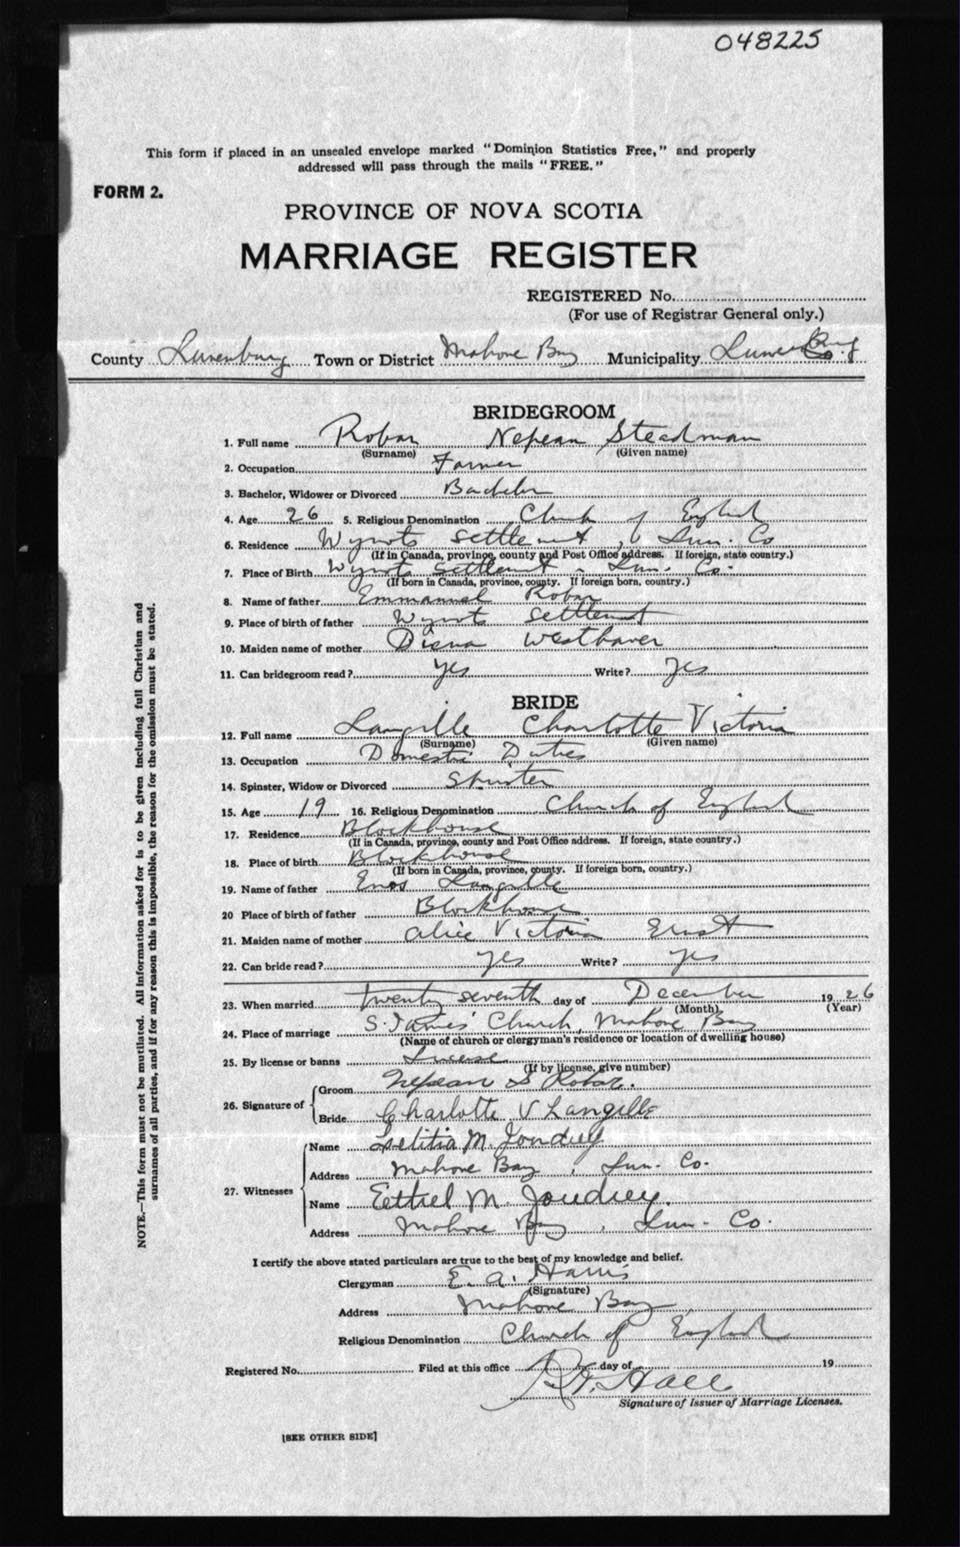 048225
This form if placed in an unsealed envelope marked "Dominion Statistics Free," and properly
addressed will pass through the mails "FREE."
FORM 2.
PROVINCE OF NOVA SCOTIA
MARRIAGE REGISTER
REGISTERED No.
(For use of Registrar General only.)
County Lunenburg Town or District Mahone Bay Municipality Lunenburg Co.
BRIDEGROOM
1. Full name Robar Nepean Steadman
(Surname) (Given name)
2. Occupation Farmer
3. Bachelor, Widower or Divorced Bachelor
4. Age 26 5. Religious Denomination Church of England
6. Residence Wynots Settlement, Lun. Co
(If in Canada, province, county and Post Office address. If foreign, state country.)
7. Place of Birth Wynots Settlement, Lun. Co.
(If born in Canada, province, county. If foreign born, country.)
8. Name of father Emmanuel Robar
9. Place of birth of father Wynots Settlement
10. Maiden name of mother Diena Westhaver
11. Can bridegroom read? Yes Write? Yes
BRIDE
12. Full name Langille Charlotte Victoria
(Surname) (Given name)
13. Occupation Domestic Duties
14. Spinster, Widow or Divorced Spinster
15. Age 19 16. Religious Denomination Church of England
17. Residence Blockhouse
(If in Canada, province, county and Post Office address. If foreign, state country.)
18. Place of birth Blockhouse
(If born in Canada, province, county. If foreign born, country.)
19. Name of father Enos Langille
20 Place of birth of father Blockhouse
21. Maiden name of mother Alice Victoria Ernst
22. Can bride read? yes Write? yes
23. When married twenty seventh day of December 1926
(Month) (Year)
24. Place of marriage S. James' Church, Mahone Bay
(Name of church or clergyman's residence or location of dwelling house)
25. By license or banns License
(If by license, give number)
26. Signature of Groom Nepean S Robar.
Bride Charlotte V Langille
27. Witnesses Name Letitia M. Joudrey
Address Mahone Bay, Lun. Co.
Name Eethel M. Joudrey.
Address Mahone Bay, Lun. Co.
I certify the above stated particulars are true to the best of my knowledge and belief.
Clergyman E. A. Harris
(Signature)
Address Mahone Bay
Religious Denomination Church of England
Registered No. Filed at this office day of 19
Hall
Signature of Issuer of Marriage Licenses.
[SEE OTHER SIDE]
NOTE.—This form must not be mutilated. All information asked for is to be given including full Christian and
surnames of all parties, and if for any reason this is impossible, the reason for the omission must be stated.